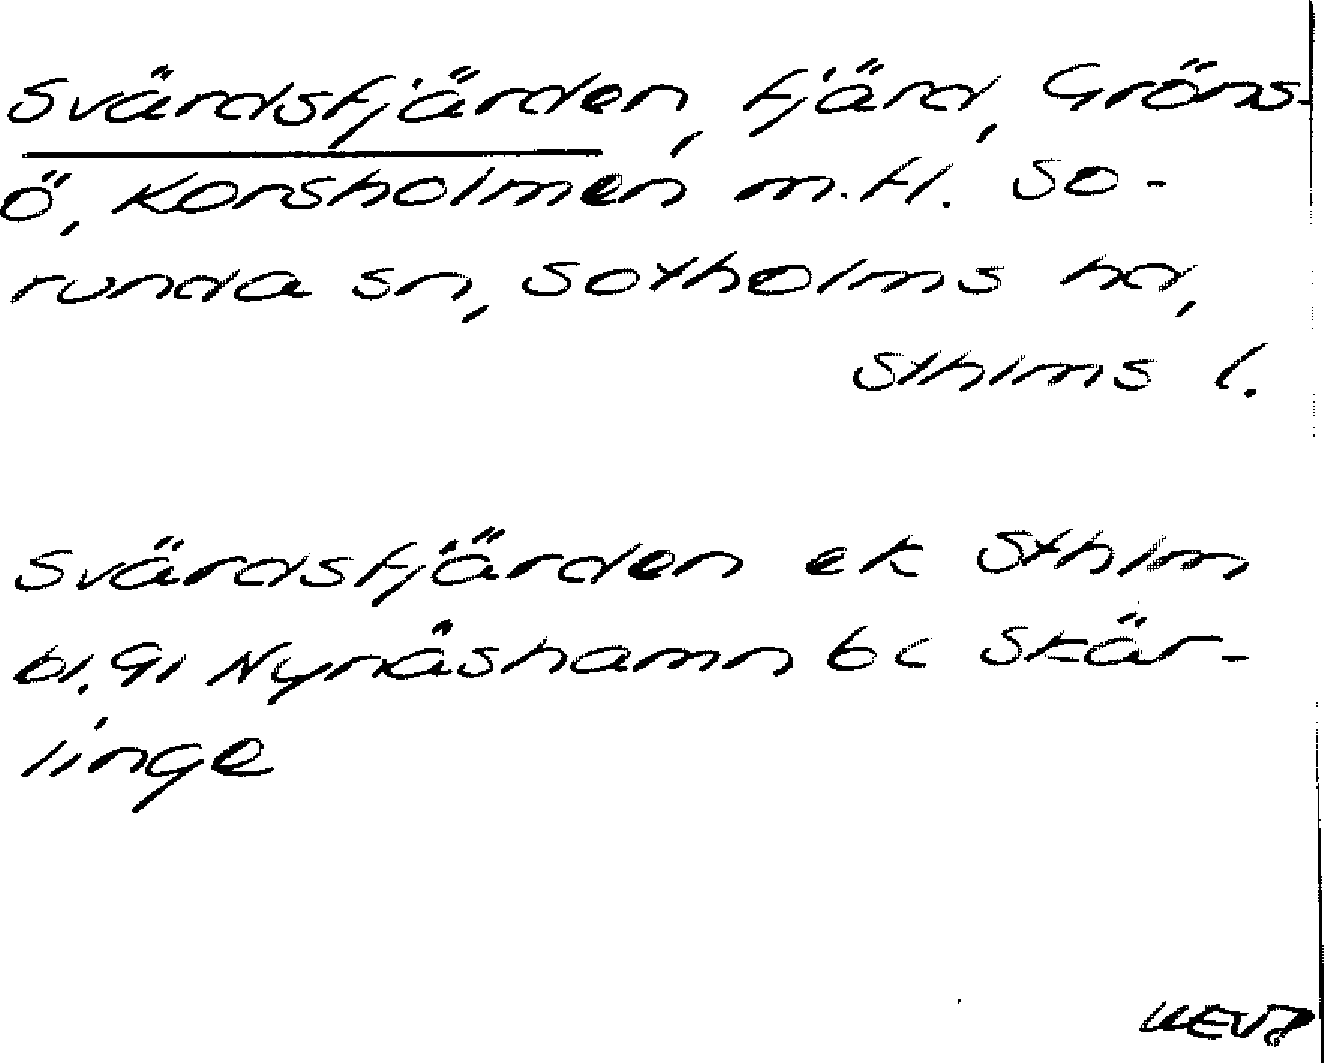 Svärdsfjärden, fjärd, Gröns-
ö, Korsholmen m.fl. So-
runda sn, Sotholms hd,
Sthlms l.
Svärdsfjärden ek Sthlm
bl. 91 Nynäshamn bc Skär-
linge